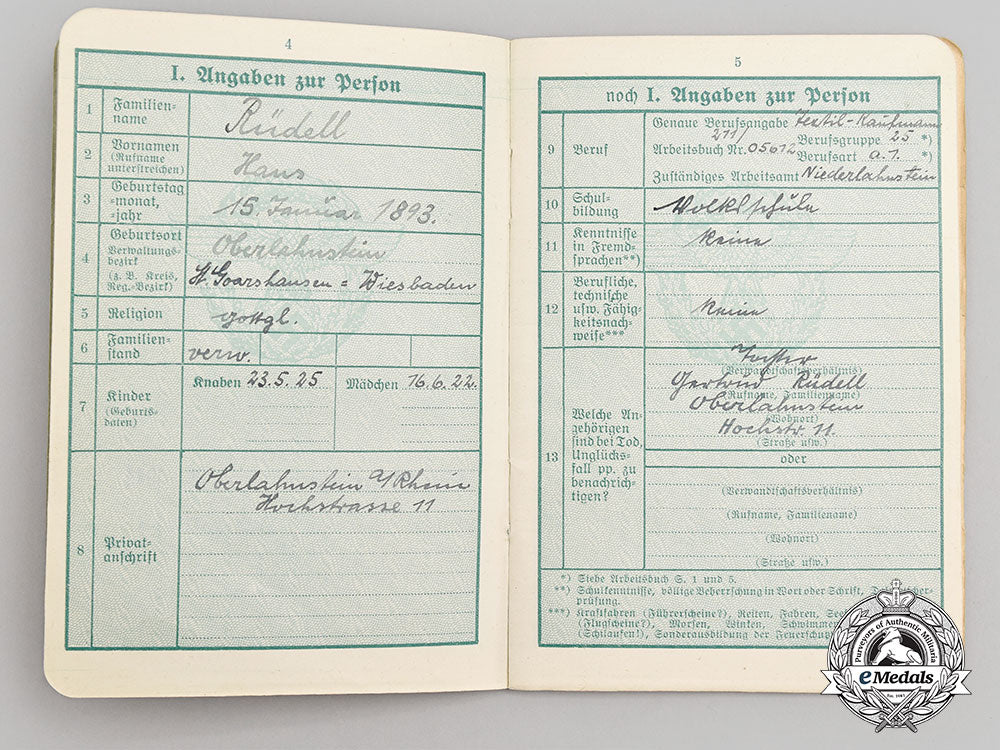 4
I. Angaben zur Person
1
Familien-
name
Rüdell
2
Vornamen
(Rufname
unterstreichen)
Hans
3
Geburtstag
-monat,
-jahr
15. Januar 1893.
4
Geburtsort
Verwaltungs-
bezirk
(z. B. Kreis,
Reg.-Bezirk)
Oberlahnstein
St. Goarshausen = Wiesbaden
5
Religion
gottgl.
6
Familien-
stand
verw.
7
Kinder
(Geburts-
daten)
Knaben 23.5.25
Mädchen 16.6.22.
8
Privat-
anschrift
Oberlahnstein a/Rhein
Hochstrasse 11
5
noch I. Angaben zur Person
9
Beruf
Genaue Berufsangabe Textil-Kaufmann
211/
Berufsgruppe 25 *)
Arbeitsbuch Nr. 05612
Berufsart a.1. *)
Zuständiges Arbeitsamt Niederlahnstein
10
Schul-
bildung
Volksschule
11
Kenntnisse
in Fremd-
sprachen**)
keine
12
Berufliche,
technische
usw. Fähig-
keitsnach-
weise***
keine
13
Welche An-
gehörigen
sind bei Tod,
Unglücks-
fall pp. zu
benachrich-
tigen?
Tochter
(Verwandtschaftsverhältnis)
Gertrud Rüdell
(Rufname, Familienname)
Oberlahnstein
(Wohnort)
Hochstr. 11.
(Straße usw.)
oder
(Verwandtschaftsverhältnis)
(Rufname, Familienname)
(Wohnort)
(Straße usw.)
*) Siehe Arbeitsbuch S. 1 und 5.
**) Schulkenntnisse, völlige Beherrschung in Wort oder Schrift,
prüfung.
***) Kraftfahren (Führerscheine?), Reiten, Fahren,
(Flugscheine?), Morsen, Winken,
(Schlaufen!), Sonderausbildung der
Purveyors of Authentic Militaria
eMedals